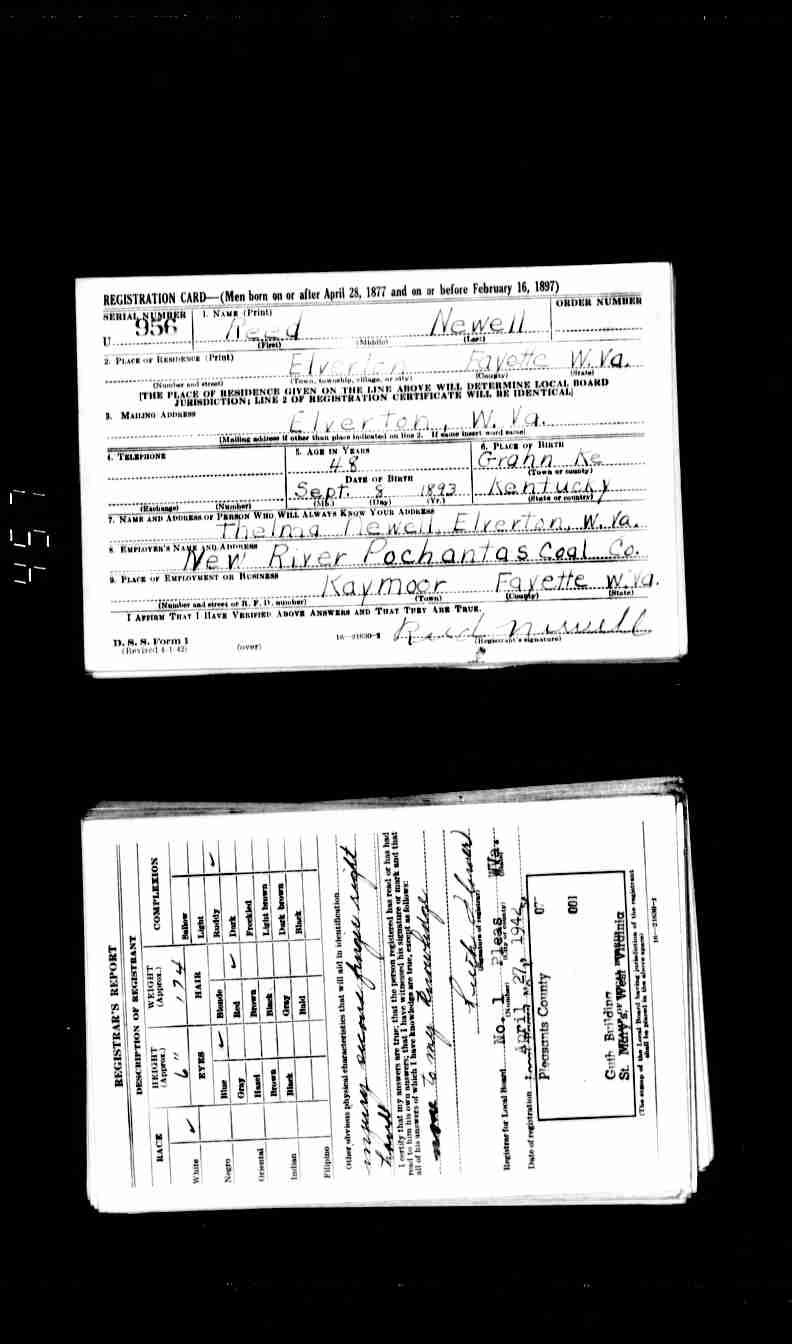 REGISTRATION CARD—(Men born on or after April 28, 1877 and on or before February 16, 1897)
SERIAL NUMBER
1. NAME (Print)
ORDER NUMBER
U 956
Reed Newell
(First) (Middle) (Last)
2. PLACE OF RESIDENCE (Print)
Elverton Fayette W. Va.
(Number and street) (Town, township, village, or city) (County) (State)
[THE PLACE OF RESIDENCE GIVEN ON THE LINE ABOVE WILL DETERMINE LOCAL BOARD
JURISDICTION; LINE 2 OF REGISTRATION CERTIFICATE WILL BE IDENTICAL]
3. MAILING ADDRESS
Elverton, W. Va.
[Mailing address if other than place indicated on line 2. If same insert word same]
4. TELEPHONE
5. AGE IN YEARS
6. PLACE OF BIRTH
48
Grahn Ke
(Town or county)
DATE OF BIRTH
Sept. 8 1893
Kentucky
(Exchange) (Number) (Mo.) (Day) (Yr.) (State or country)
7. NAME AND ADDRESS OF PERSON WHO WILL ALWAYS KNOW YOUR ADDRESS
Thelma Newell, Elverton, W. Va.
8. EMPLOYER'S NAME AND ADDRESS
New River Pochantas Coal Co.
9. PLACE OF EMPLOYMENT OR BUSINESS
Kaymoor Fayette W. Va.
(Number and street or R. F. D. number) (Town) (County) (State)
I AFFIRM THAT I HAVE VERIFIED ABOVE ANSWERS AND THAT THEY ARE TRUE.
D. S. S. Form 1
(Revised 4-1-42) (over) 16—21630-2
Reed Newell
(Registrant's signature)
457
REGISTRAR'S REPORT
DESCRIPTION OF REGISTRANT
RACE
HEIGHT (Approx.)
WEIGHT (Approx.)
COMPLEXION
6" 174
EYES
HAIR
White
Negro
Oriental
Indian
Filipino
Blue
Gray
Hazel
Brown
Black
Blonde
Red
Brown
Black
Gray
Bald
Sallow
Light
Ruddy
Dark
Freckled
Light brown
Dark brown
Black
Other obvious physical characteristics that will aid in identification
injury second finger right
hand
I certify that my answers are true; that the person registered has read or has had
read to him his own answers; that I have witnessed his signature or mark and that
all of his answers of which I have knowledge are true, except as follows:
none to my knowledge
(Signature of registrar)
Registrar for Local Board No. 1 Pleas W.Va.
(Number) (City or county) (State)
Date of registration April 27, 1942
Pleasants County 07
001
Guth Building
St. Marys, West Virginia
(The stamp of the Local Board having jurisdiction of the registrant
shall be placed in the above space)
16—21630-1